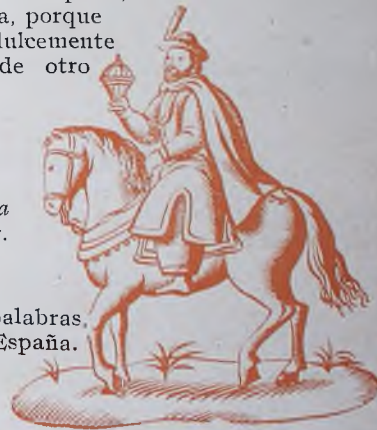 a, porque
dulcemente
de otro
a
palabras,
España.